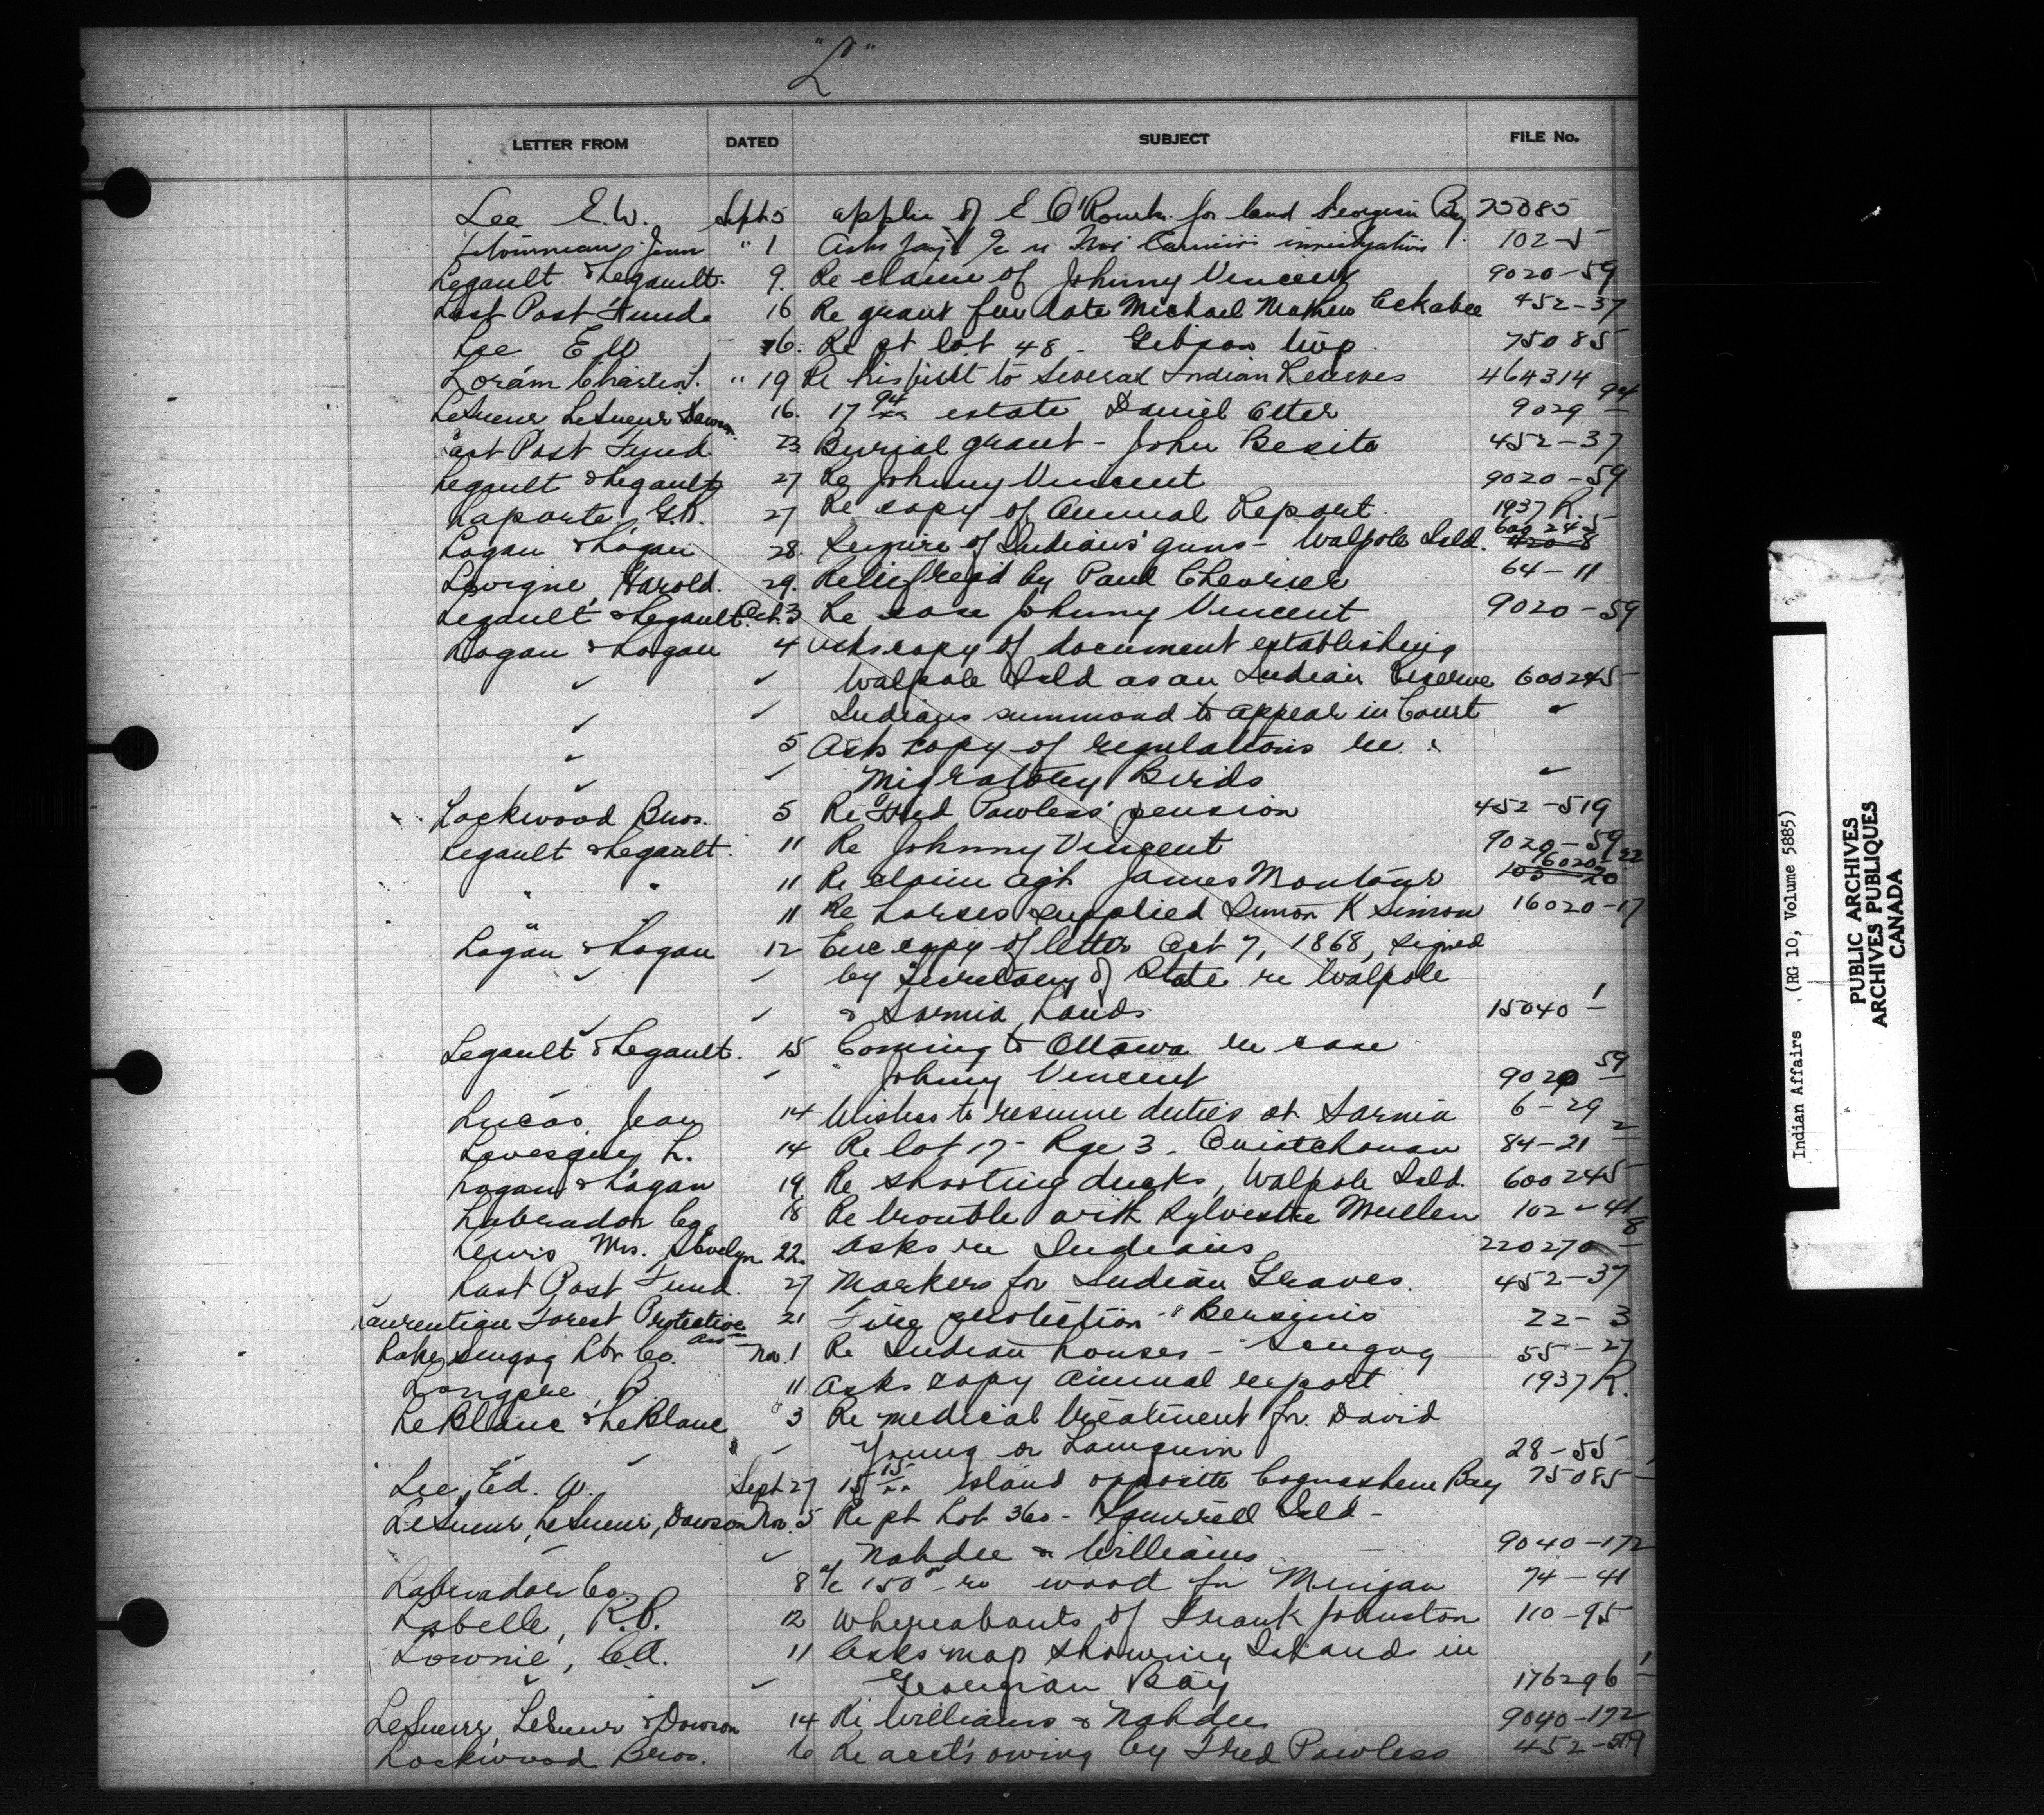 "L"
LETTER FROM DATED SUBJECT FILE No.
Lee E.W. Sept 5 applic of E O'Rourke for land Georgian Bay 75085
" 1 Asks 102-5
Legault & Legault. 9. Re claim of Johnny Vincent 9020-59
Last Post Fund 16 Re grant for late Michael Mathew 452-37
Lee E W 16. Re pt lot 48 - Gibson twp. 75085
Loram Charles T. " 19 Re his visit to several Indian Reserves 464314
LeSueur LeSueur Dawson. 16. 17 94/xx estate Daniel 9029-94
Last Post Fund 23 Burial grant - John Besito 452-37
Legault & Legault 27 Re Johnny Vincent 9020-59
Laporte, G.R. 27 Re copy of Annual Report. 1937 R.
Logan & Logan 28. Seizure of Indians' guns - Walpole Isld. 600245
Lavigne, Harold. 29. Relief rec'd by Paul Chevrier 64-11
Legault & Legault. Oct. 3 Re case Johnny Vincent 9020-59
Logan & Logan 4 Asks copy of document establishing
Walpole Isld as an Indian Reserve 600245
Indians summond to appear in Court
5 Asks copy of regulations re
Migratory Birds
Lockwood Bros. 5 Re Fred Powless' pension 452-519
Legault & Legault. 11 Re Johnny Vincent 9020-59
" " 11 Re claim agt James Montour 16020-22
" " 11 Re horses supplied Simon K Simon 16020-17
Logan & Logan 12 Enc copy of letter Oct 7, 1868, signed
by Secretary of State re Walpole
& Sarnia Lands 15040-1
Legault & Legault. 15 Coming to Ottawa re case
Johnny Vincent 9020-59
Lucas, Jean 14 Wishes to resume duties at Sarnia 6-29
Lavesque, L. 14 Re lot 17 - Rge 3 - Ouiatchouan 84-21-2
Logan & Logan 19 Re shooting ducks, Walpole Isld. 600245
Labrador Co. 18 Re trouble with Sylvestre Mullen 102-41
Lewis Mrs. Evelyn 22 Asks re Indians 220270-8
Last Post Fund. 27 Markers for Indian Graves. 452-37
Laurentian Forest Protective Ass 21 Fire protection - Bersimis 22-3
Lake Scugog Lbr Co. Nov. 1 Re Indian houses - Scugog 55-27
Longpre, B. 11. Asks copy annual report 1937 R.
LeBlanc & LeBlanc 3 Re medical treatment for David
Young or Lamquin 28-55
Lee, Ed. W. Sept 27 15 15/xx island opposite Cognashene Bay 75085
LeSueur, LeSueur, Dawson Nov. 5 Re pt Lot 360 - Squirrell Isld -
Nahdee & Williams 9040-172
Labrador Co. 8 a/c 150 00 re wood for Mingan 74-41
Labelle, R.P. 12 Whereabouts of Frank Johnston 110-95
Lownie, C.A. 11 Asks map showing Islands in
Georgian Bay 176296-1
LeSueur, LeSueur & Dawson 14 Re Williams & Nahdee 9040-172
Lockwood Bros. 16 Re acct's owing by Fred Powless 452-519
Indian Affairs (RG 10, Volume 5885)
PUBLIC ARCHIVES
ARCHIVES PUBLIQUES
CANADA